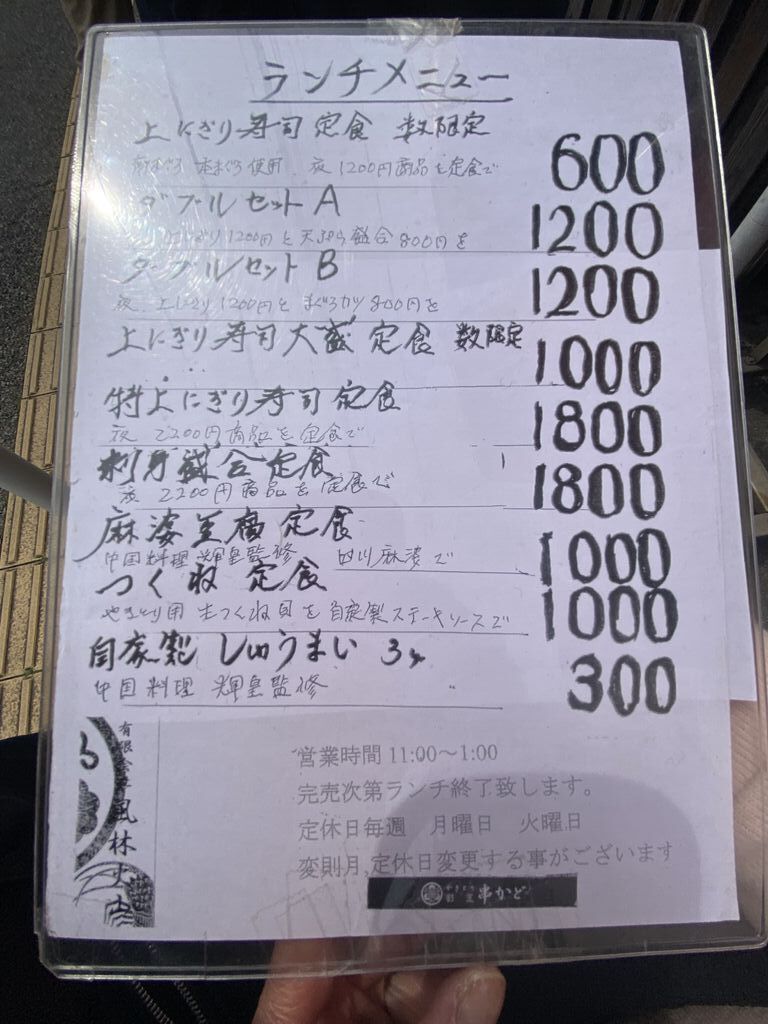 ランチメニュー
上にぎり寿司定食 数限定 600
本まぐろ使用 夜1200円商品を定食で
ダブルセットA 1200
上にぎり1200円と天ぷら盛合800円を
ダブルセットB 1200
夜 上にぎり1200円とまぐろカツ800円を
上にぎり寿司大盛定食 数限定 1000
特上にぎり寿司定食 1800
夜 2200円商品を定食で
刺身盛合定食 1800
夜 2200円商品を定食で
麻婆豆腐定食 1000
中国料理 輝皇監修 四川麻婆で
つくね定食 1000
やきとり用 生つくね肉を自家製ステーキソースで
自家製しゅうまい 3ヶ 300
中国料理 輝皇監修
営業時間 11:00〜1:00
完売次第ランチ終了致します。
定休日毎週 月曜日 火曜日
変則月,定休日変更する事がございます
串かど
有限会社風林火山